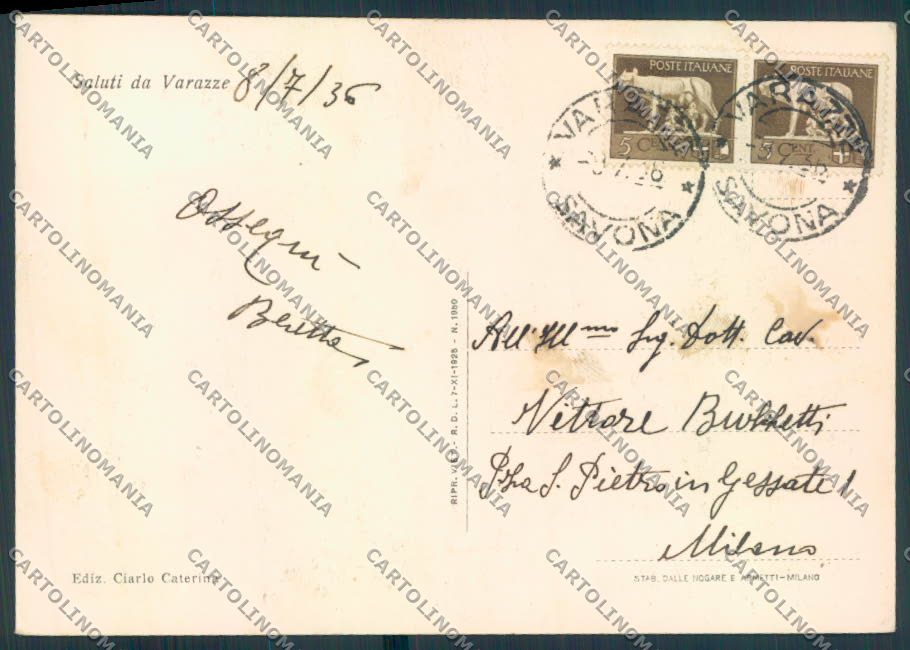 Saluti da Varazze 8/7/36
Ossequi
Beretta
RIPR. VIET. - R. D. L. 7-XI-1925 - N. 1950
POSTE ITALIANE
5 CENT.
POSTE ITALIANE
5 CENT.
VARAZZE
SAVONA
VARAZZE
SAVONA
All'Ill.mo Sig. Dott. Cav.
Vittore
P.za S. Pietro in Gessate 1
Milano
Ediz. Ciarlo Caterina
STAB. DALLE NOGARE E ARMETTI-MILANO
CARTOLINOMANIA